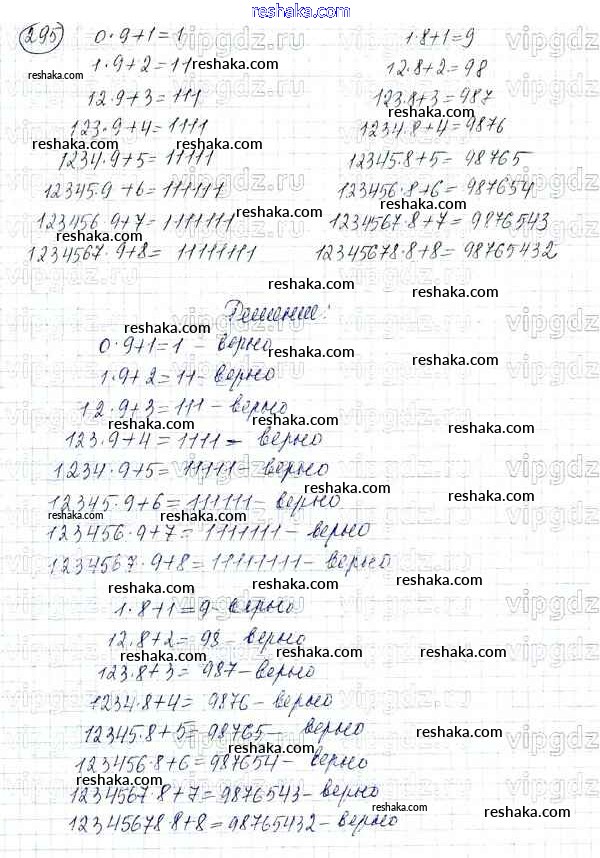 reshaka.com
295 0·9+1=1 1·8+1=9
1·9+2=11 12·8+2=98
12·9+3=111 123·8+3=987
123·9+4=1111 1234·8+4=9876
1234·9+5=11111 12345·8+5=98765
12345·9+6=111111 123456·8+6=987654
123456·9+7=1111111 1234567·8+7=9876543
1234567·9+8=11111111 12345678·8+8=98765432
Решение:
0·9+1=1 – верно
1·9+2=11 – верно
12·9+3=111 – верно
123·9+4=1111 – верно
1234·9+5=11111 – верно
12345·9+6=111111 – верно
123456·9+7=1111111 – верно
1234567·9+8=11111111 – верно
1·8+1=9 – верно
12·8+2=98 – верно
123·8+3=987 – верно
1234·8+4=9876 – верно
12345·8+5=98765 – верно
123456·8+6=987654 – верно
1234567·8+7=9876543 – верно
12345678·8+8=98765432 – верно
vipgdz.ru
reshaka.com